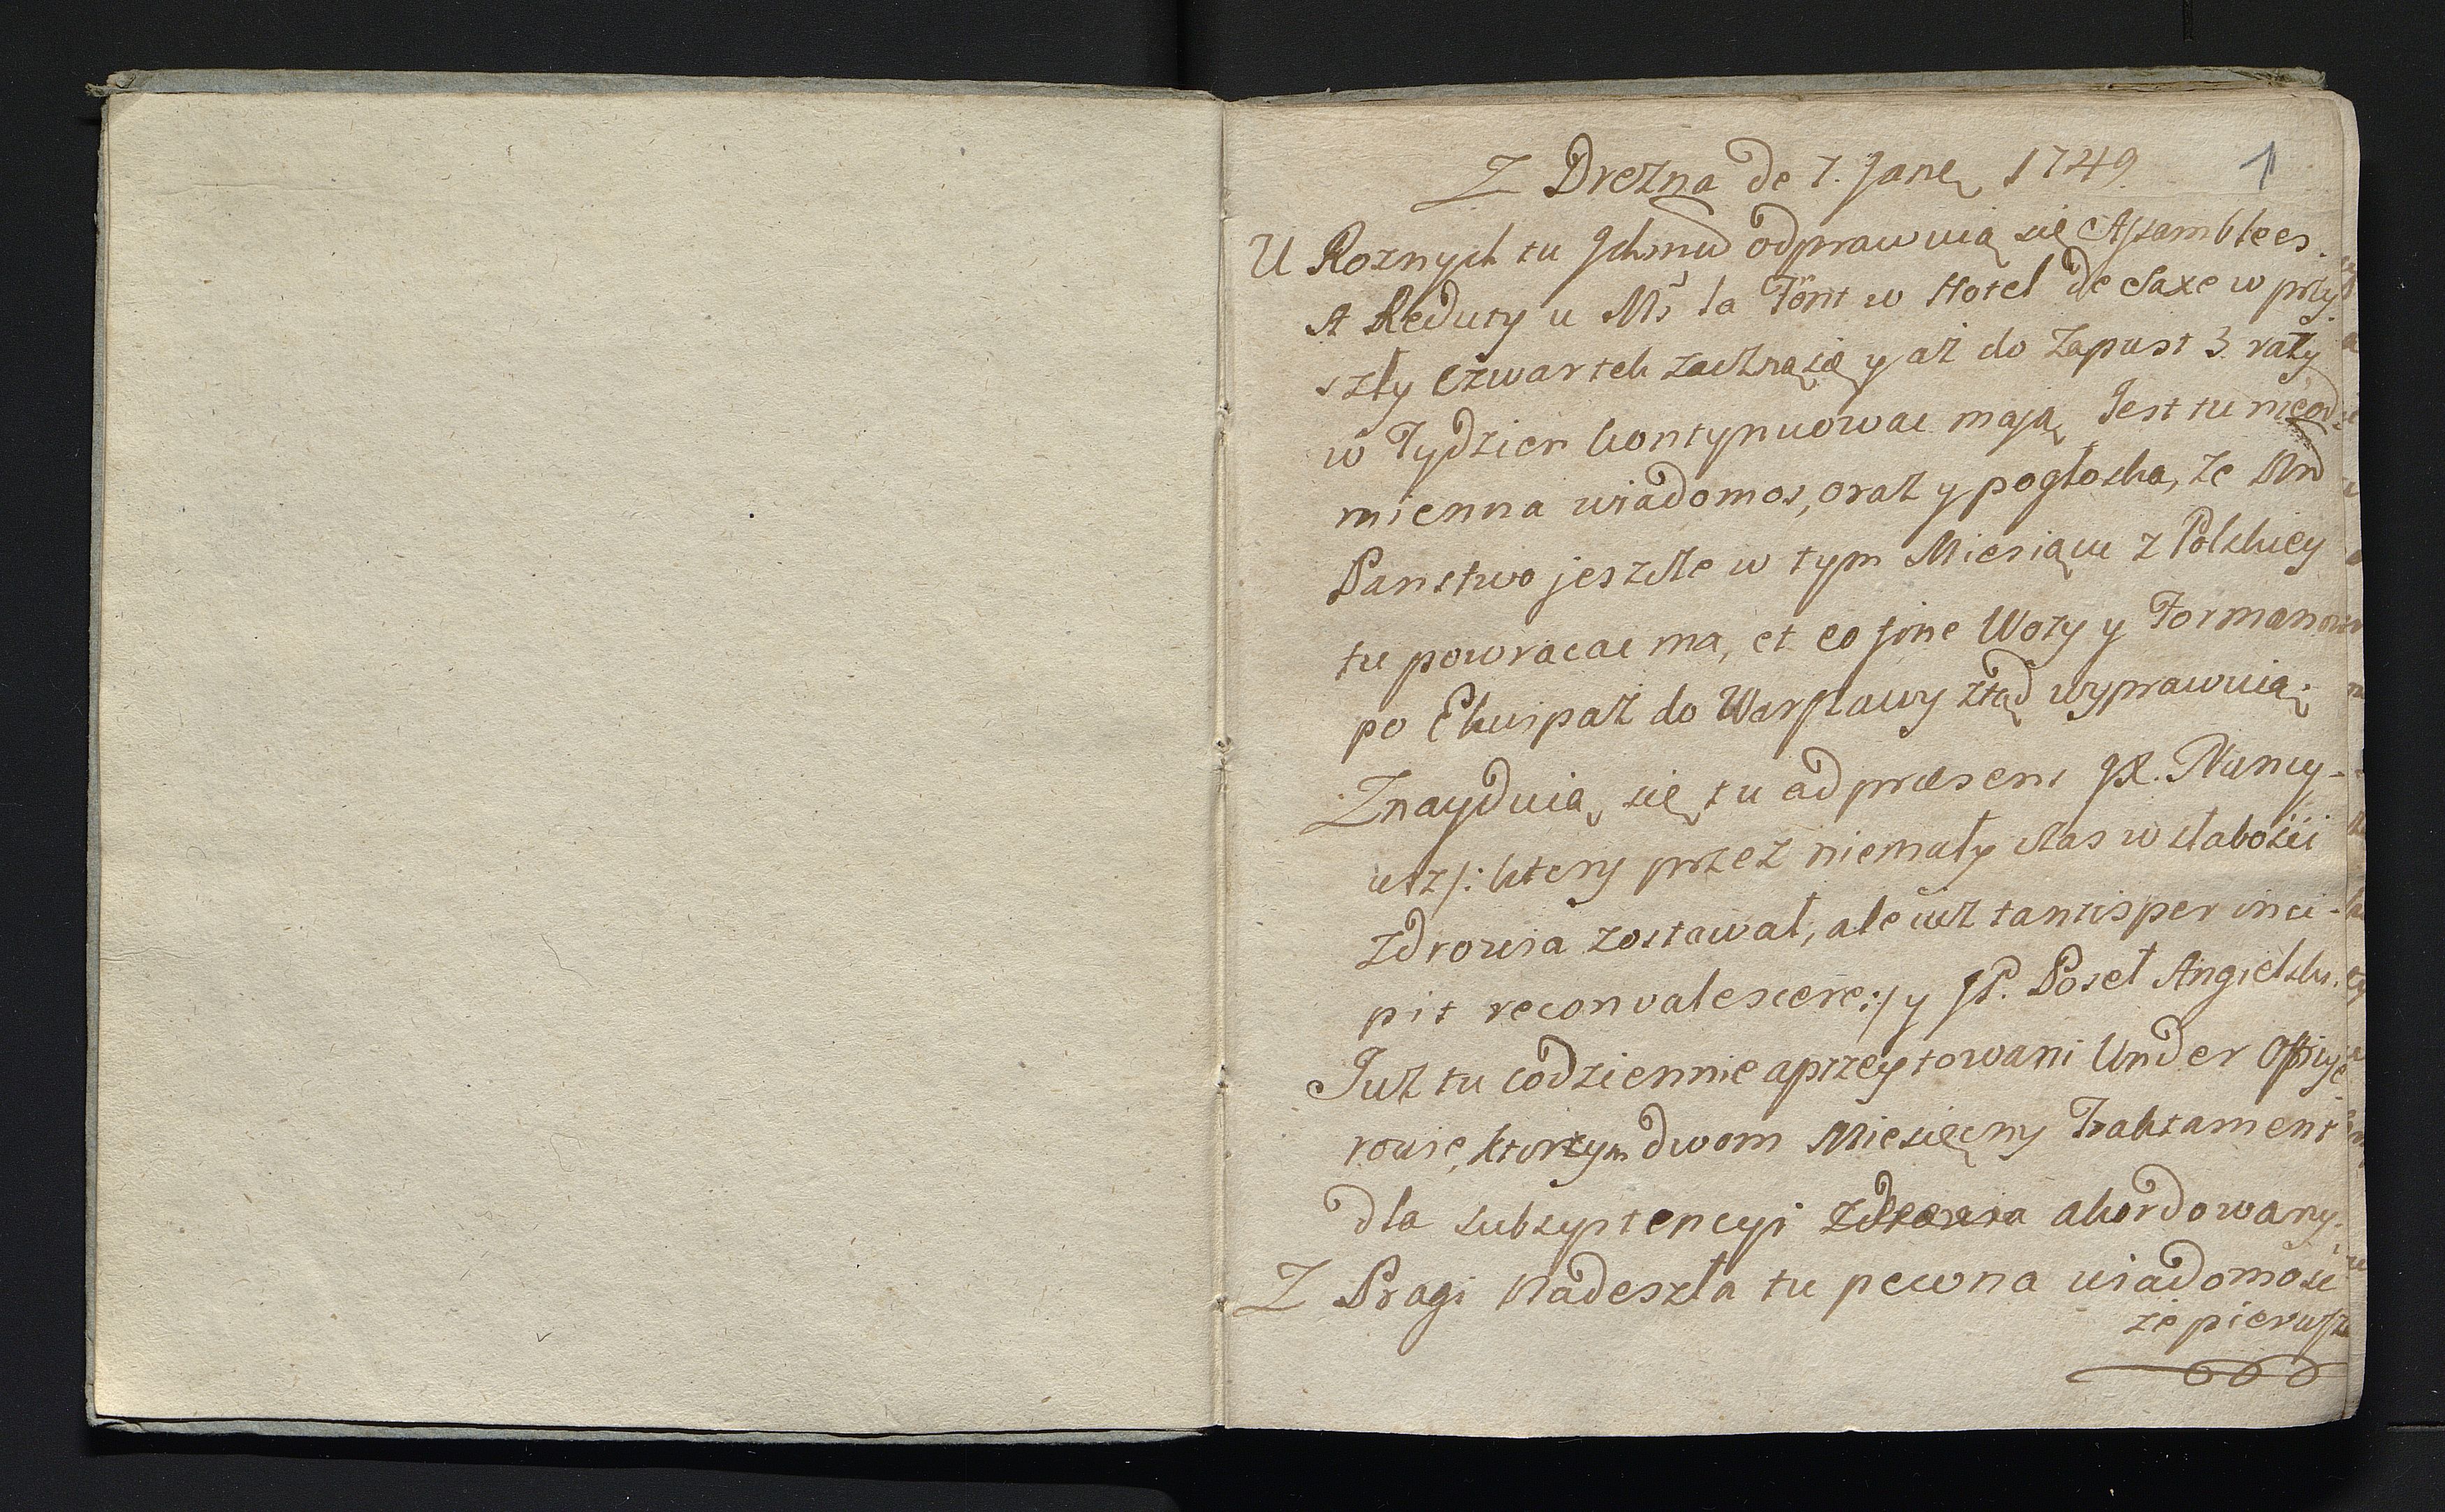 1
Z Drezna de 7. Jane 1749.
U Roznych tu Jchmu odprawuią się Assamblees.
A Reduty u Mr la Font w Hotel de Saxe w przy
szły Czwartek zaczną się y aż do Zapust 3. razy
w Tydzien kontynuowac mają Jest tu nieod
mienna wiadomos, oraz y pogłoska, ze Nn
Panstwo jeszcze w tym Miesiącu z Polskiey
tu powracac ma, et eo fine Wozy y Formanow
po Ekwipaż do Warszawy ztąd wyprawuią.
Znayduią się tu ad præsens JX. Nuncy-
usz /: ktory przez niemały czas w słabości
zdrowia zostawał, ale iuż tantisper inci-
pit reconvalescere :/ y JP. Poseł Angielski.
Już tu codziennie aprzeytowani Under Officye
rowie, ktorzym dwom Miesięcny Traktament
dla subsystencyi zdrowia akordowany.
Z Pragi nadeszła tu pewna wiadomość
że pierwsz